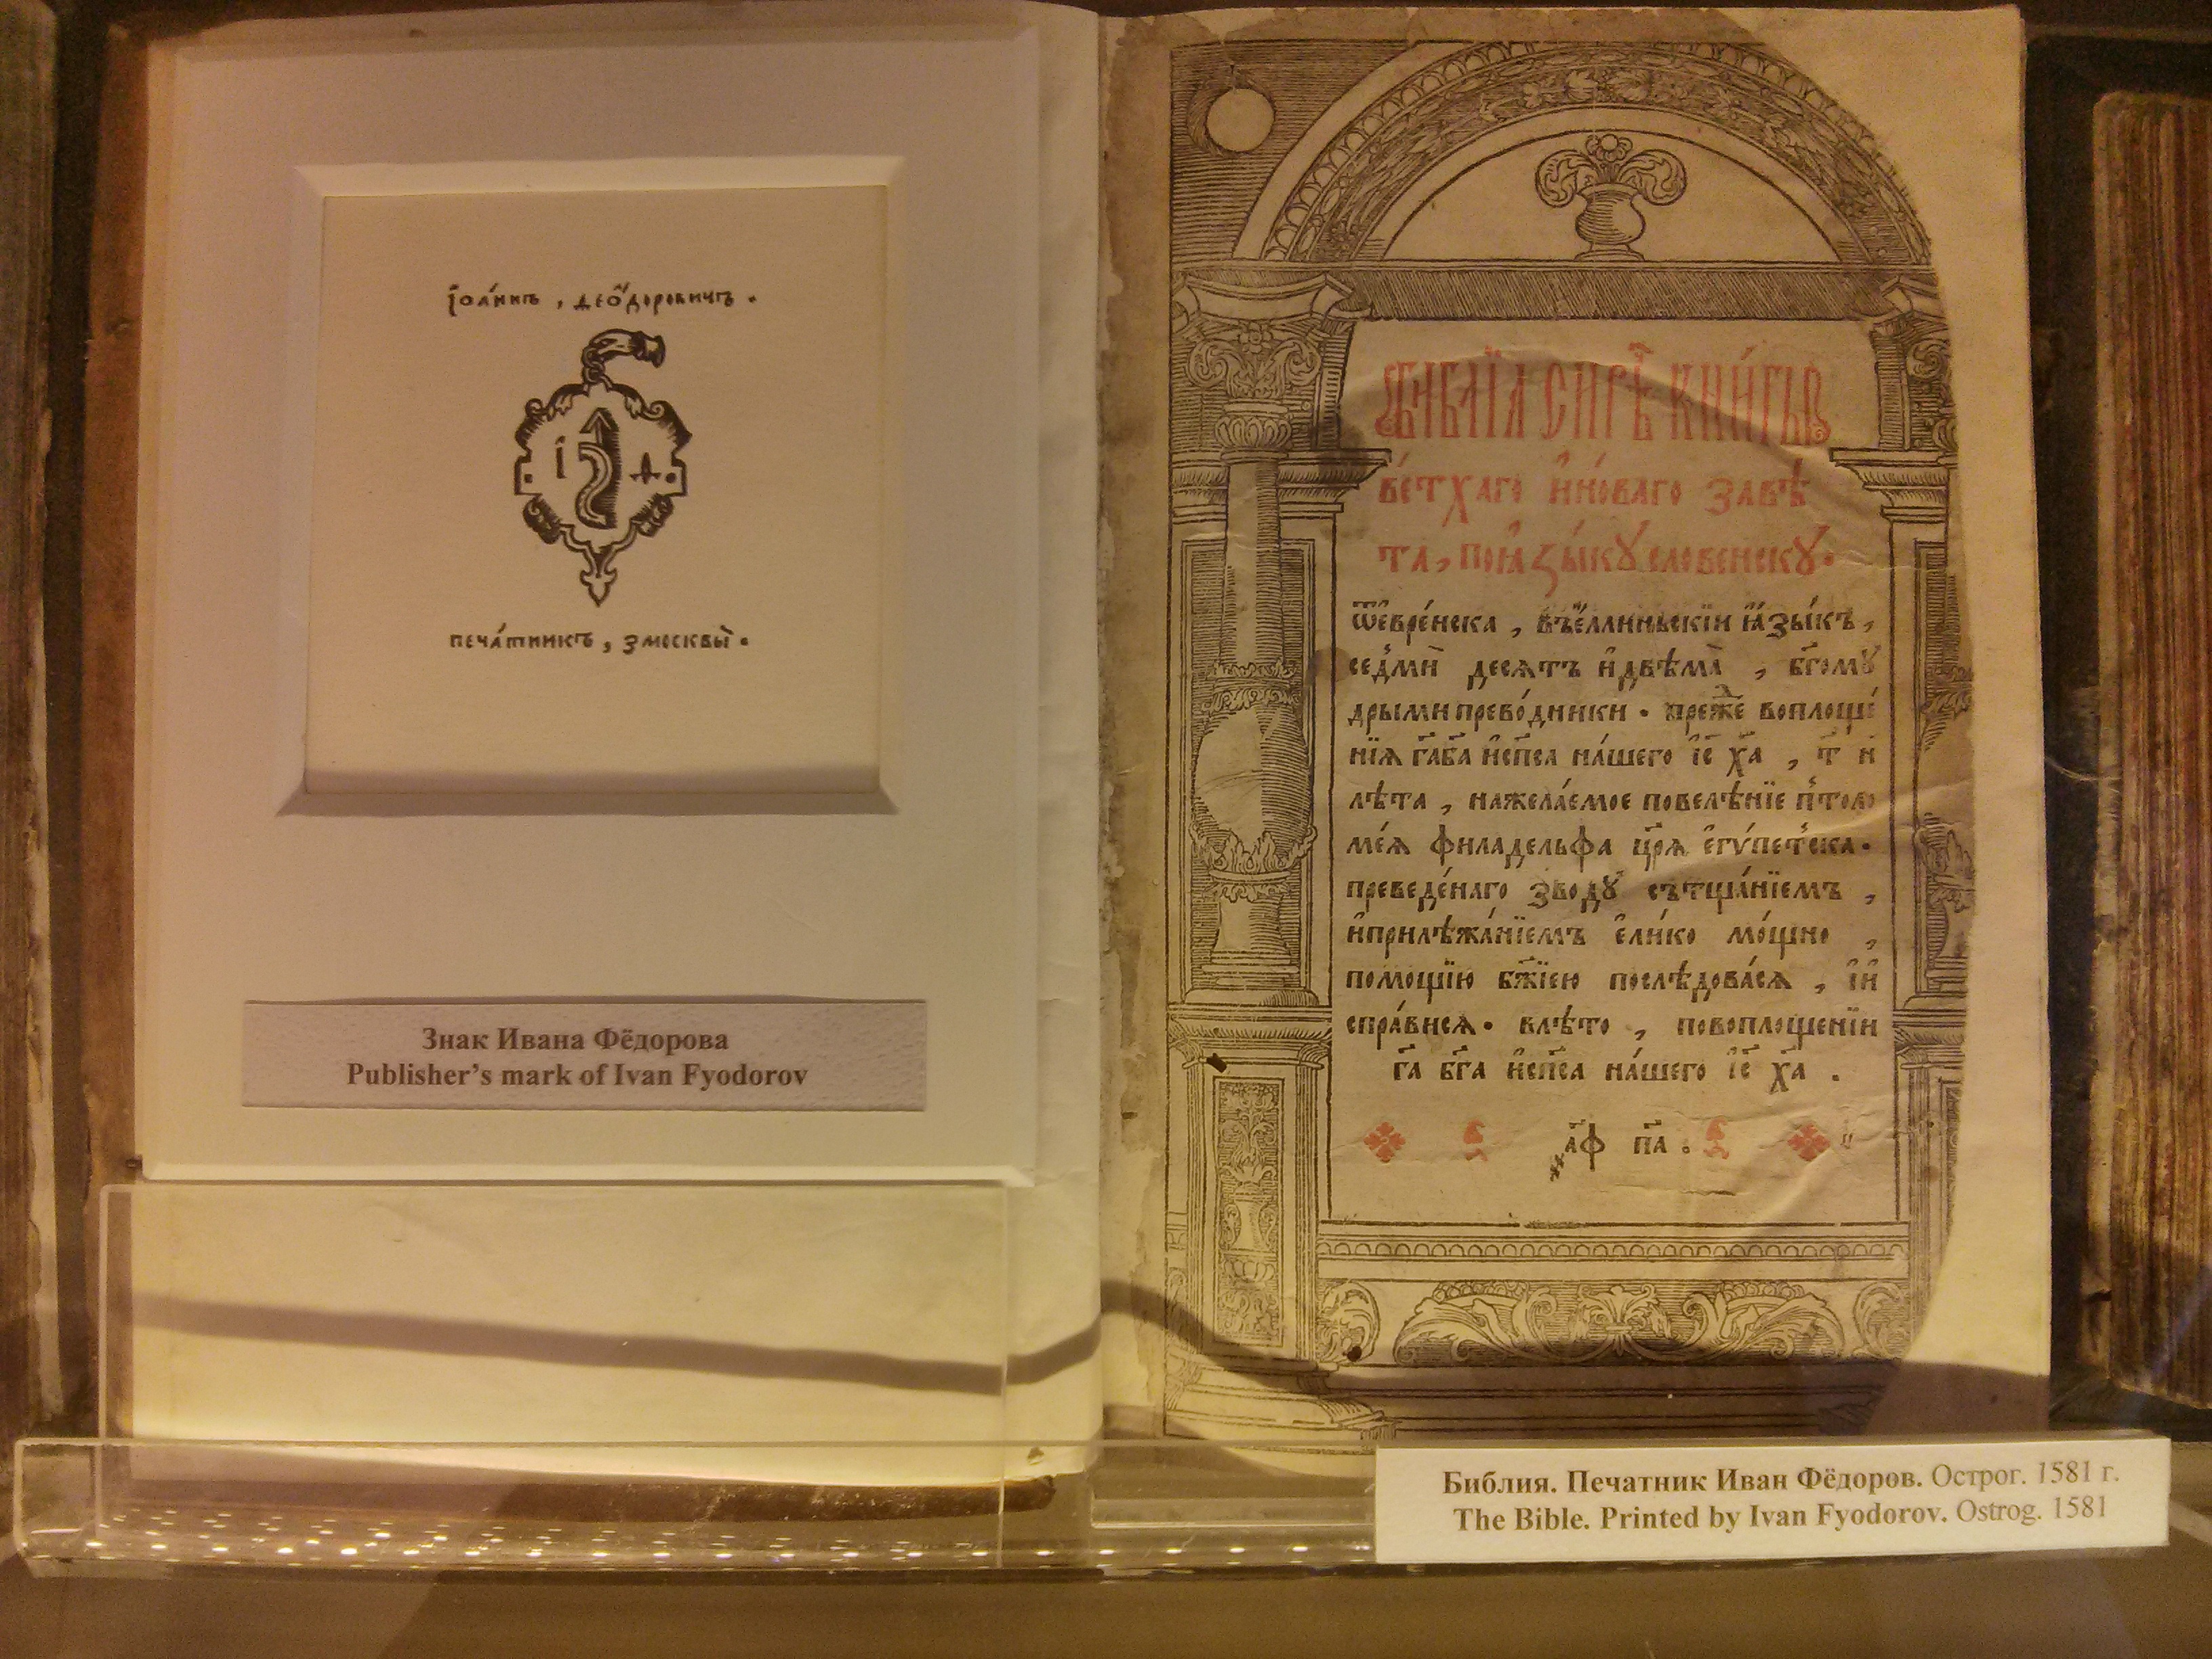 їѡа́ннъ , ѳео́доровичъ .
і ѳ
печа́тникъ , змосквы̀ .
Знак Ивана Фёдорова
Publisher’s mark of Ivan Fyodorov
Библїа сирѣ книгы
ве́тхаго и҆но́ваго завѣ
та , поꙗ҆зы́кꙋ словенскꙋ .
ѿе҆вре́йска , въе҆ллиньскїи ꙗ҆зы́къ ,
седми десятъ и҆двѣма , бг҃омꙋ
дрыми прево́дники . преже воплоще́
нїѧ га҃ба҃ и҆сп҃са на́шего і҆с҃ х҃а , т҃ и
лѣта , нажела́емое повелѣнїе птоло
ме́ѧ филадельфа цр҃ѧ е҆гѵ́петска .
преведе́наго зводꙋ сътща́нїемъ ,
и҆прилѣжа́нїемъ е҆ли́ко мо́щно ,
помощїю бж҃їею послѣдова́сѧ , і҆и҆
спра́висѧ . влѣто , повоплощенїи
г҃а бг҃а и҆сп҃са на́шего і҆с҃ х҃а .
а҃ф п҃а .
Библия. Печатник Иван Фёдоров. Острог. 1581 г.
The Bible. Printed by Ivan Fyodorov. Ostrog. 1581